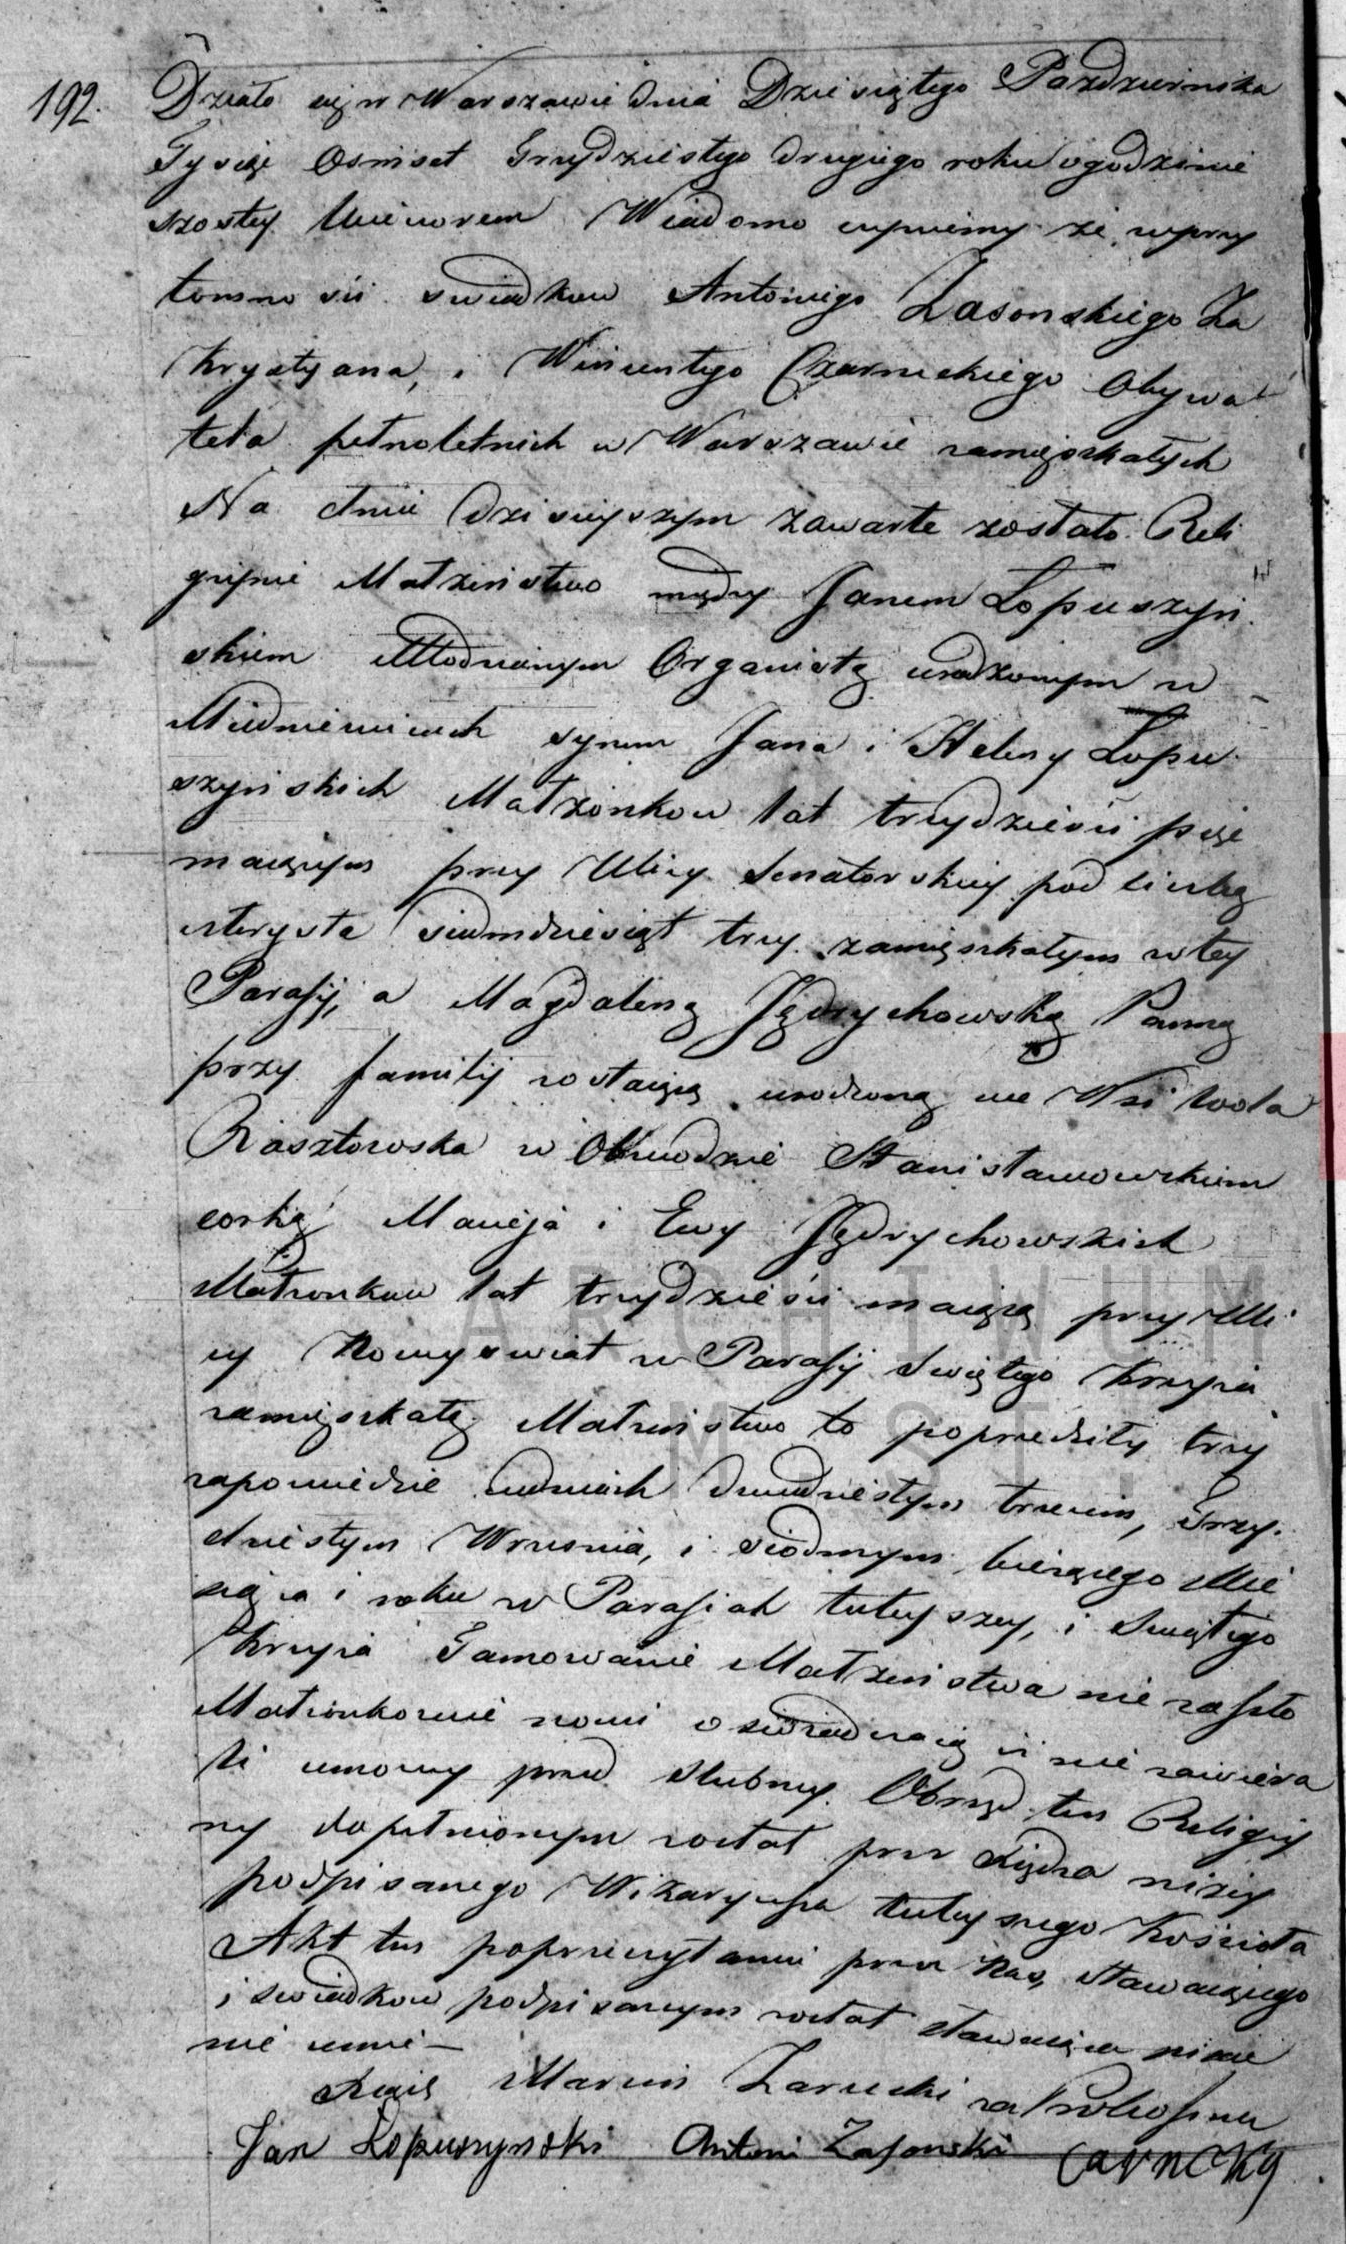 192. Działo się w Warszawie dnia Dziesiątego Pazdziernika
Tysiąc Osmset Trzydziestego drugiego roku o godzinie
szostey Wieczorem Wiadomo czyniemy że w przy
tomnosci swiadkow Antoniego Zasonskiego Za
krystyana, i Wincentego Czarneckiego Obywa
tela pełnoletnich w Warszawie zamięszkałych
Na dniu dzisieyszym zawarte zostało Reli
giyne Małzenstwo między Janem Łopuszyń
skiem Młodzianym Organistą urodzonym w
Miedniewicach synem Jana i Heleny Łopu
szyńskich Małżonkow lat trzydzieści pięc
maiącym przy Ulicy Senatorskiey pod liczbą
czterysta siedmdziesiąt trzy zamięszkałym w tey
Parafij, a Magdaleną Jędrychowską Panną
przy familij zostaiącą urodzoną we Wsi Wola
Rasztowska w Obwodzie Stanisławowskim
corką Macieja i Ewy Jędrychowskich
Małżonkow lat trzydzieści maiącą przy Uli
cy Nowy swiat w Parafij Swiętego Krzyża
zamięszkałą Małzeństwo to poprzedziły trzy
zapowiedzie w dniach dwudziestym trzecim, Trzy
dziestym Wrzesnia, i siodmym bieżącego Mie
siąca i roku w Parafiah tuteyszey, i Swiętego
Krzyża Tamowanie Małżeństwa nie zaszło
Małżonkowie nowi oswiadczaią iż nie zawiera
li umowy przed slubney. Obrząd ten Religiy
ny dopełnionym został przez Xiędza niżey
podpisanego Wikaryusza tuteyszego Kościoła
Akt ten po przeczytaniu przez Nas, stawaiącego
i swiadkow podpisanym został stawaiąca pisac
nie umie —
Xiądz Marcin Zarucki za Proboszcza
Jan Łopuszynski Antoni Zasonski Carncky
ARCHIWUM
M. ST. W